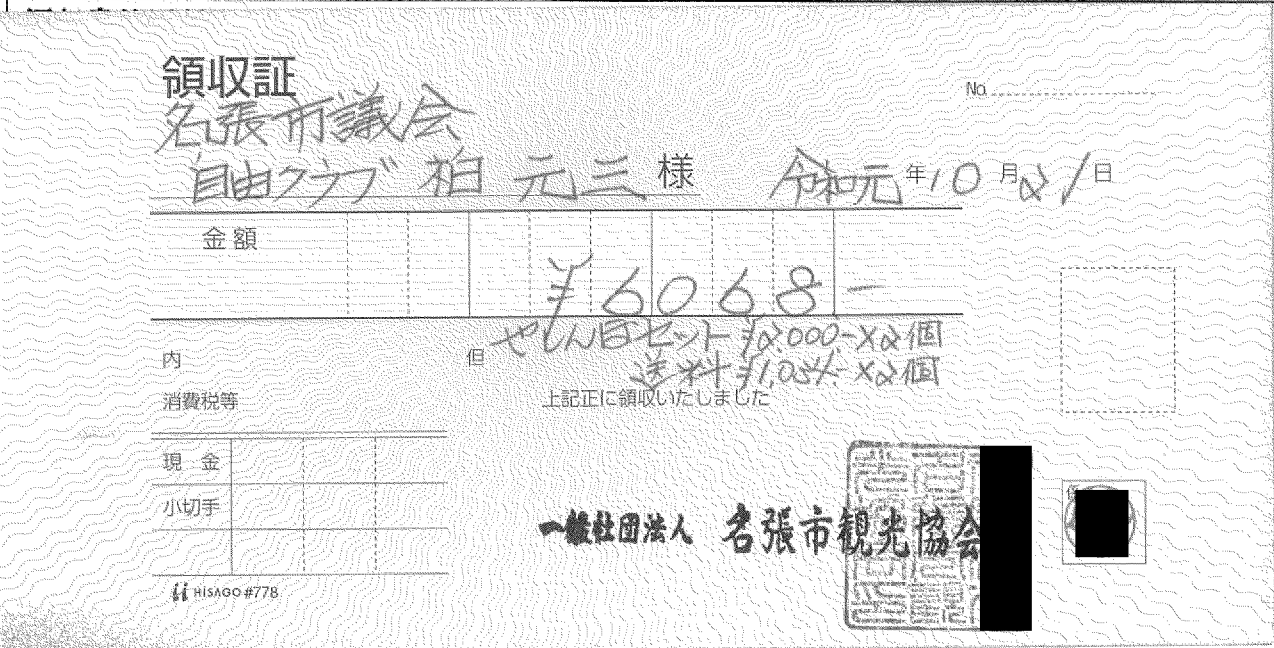 領収証
No.
名張市議会
自由クラブ 柏 元三 様 令和元年10月21日
金額
¥6068-
内
但 やしん日セット ¥2,000-×2個
送料 ¥1,034-×2個
消費税等
上記正に領収いたしました
現金
小切手
一般社団法人 名張市観光協会
HISAGO #778